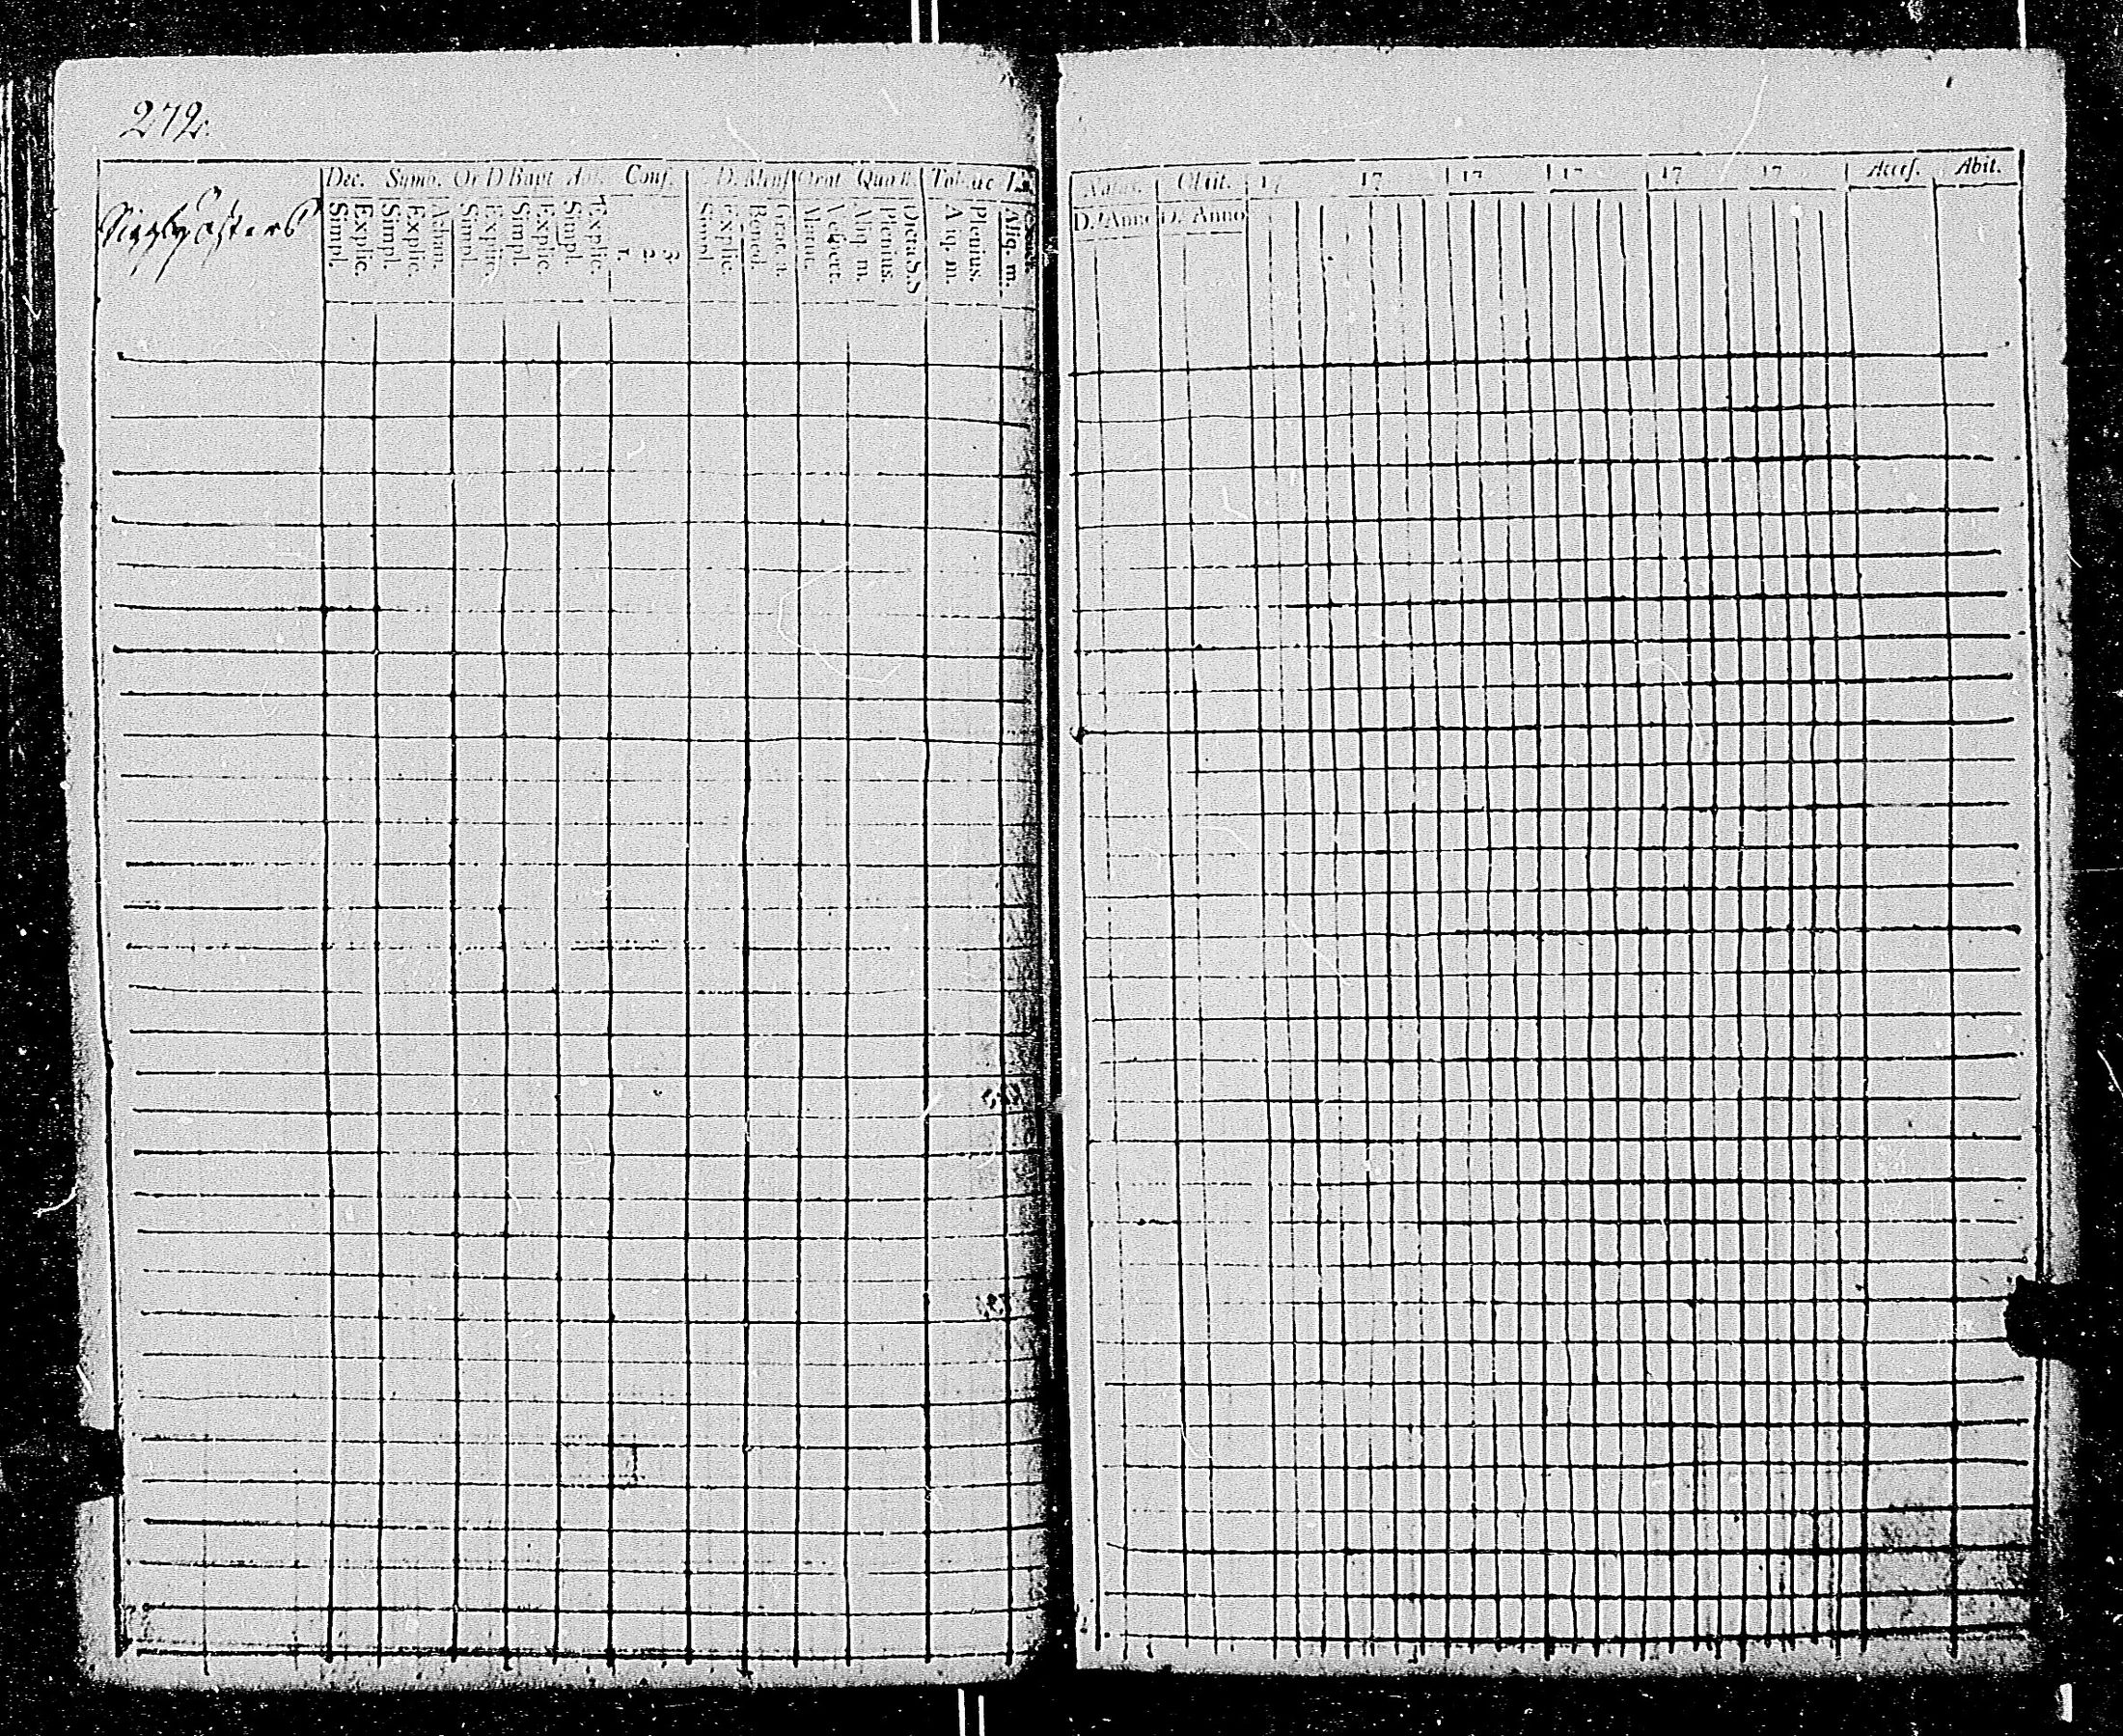 272.
Dec. Symb. Or D Bapt Conf. D. Mens Orat Quæst.
Simpl. Explic. Simpl. Explic. Athan. Simpl. Explic. Simpl. Explic. Simpl. Explic. 1. 2. 3. Simpl. Explic. Bened. Grat. a. Matut. Vespert. Aliq. m. Plenius. Dicta S.S Aliq. m. Plenius. Aliq. m.
Natus. Obiit. 17 17 17 17 17 17 Access. Abit.
D. Anno D. Anno